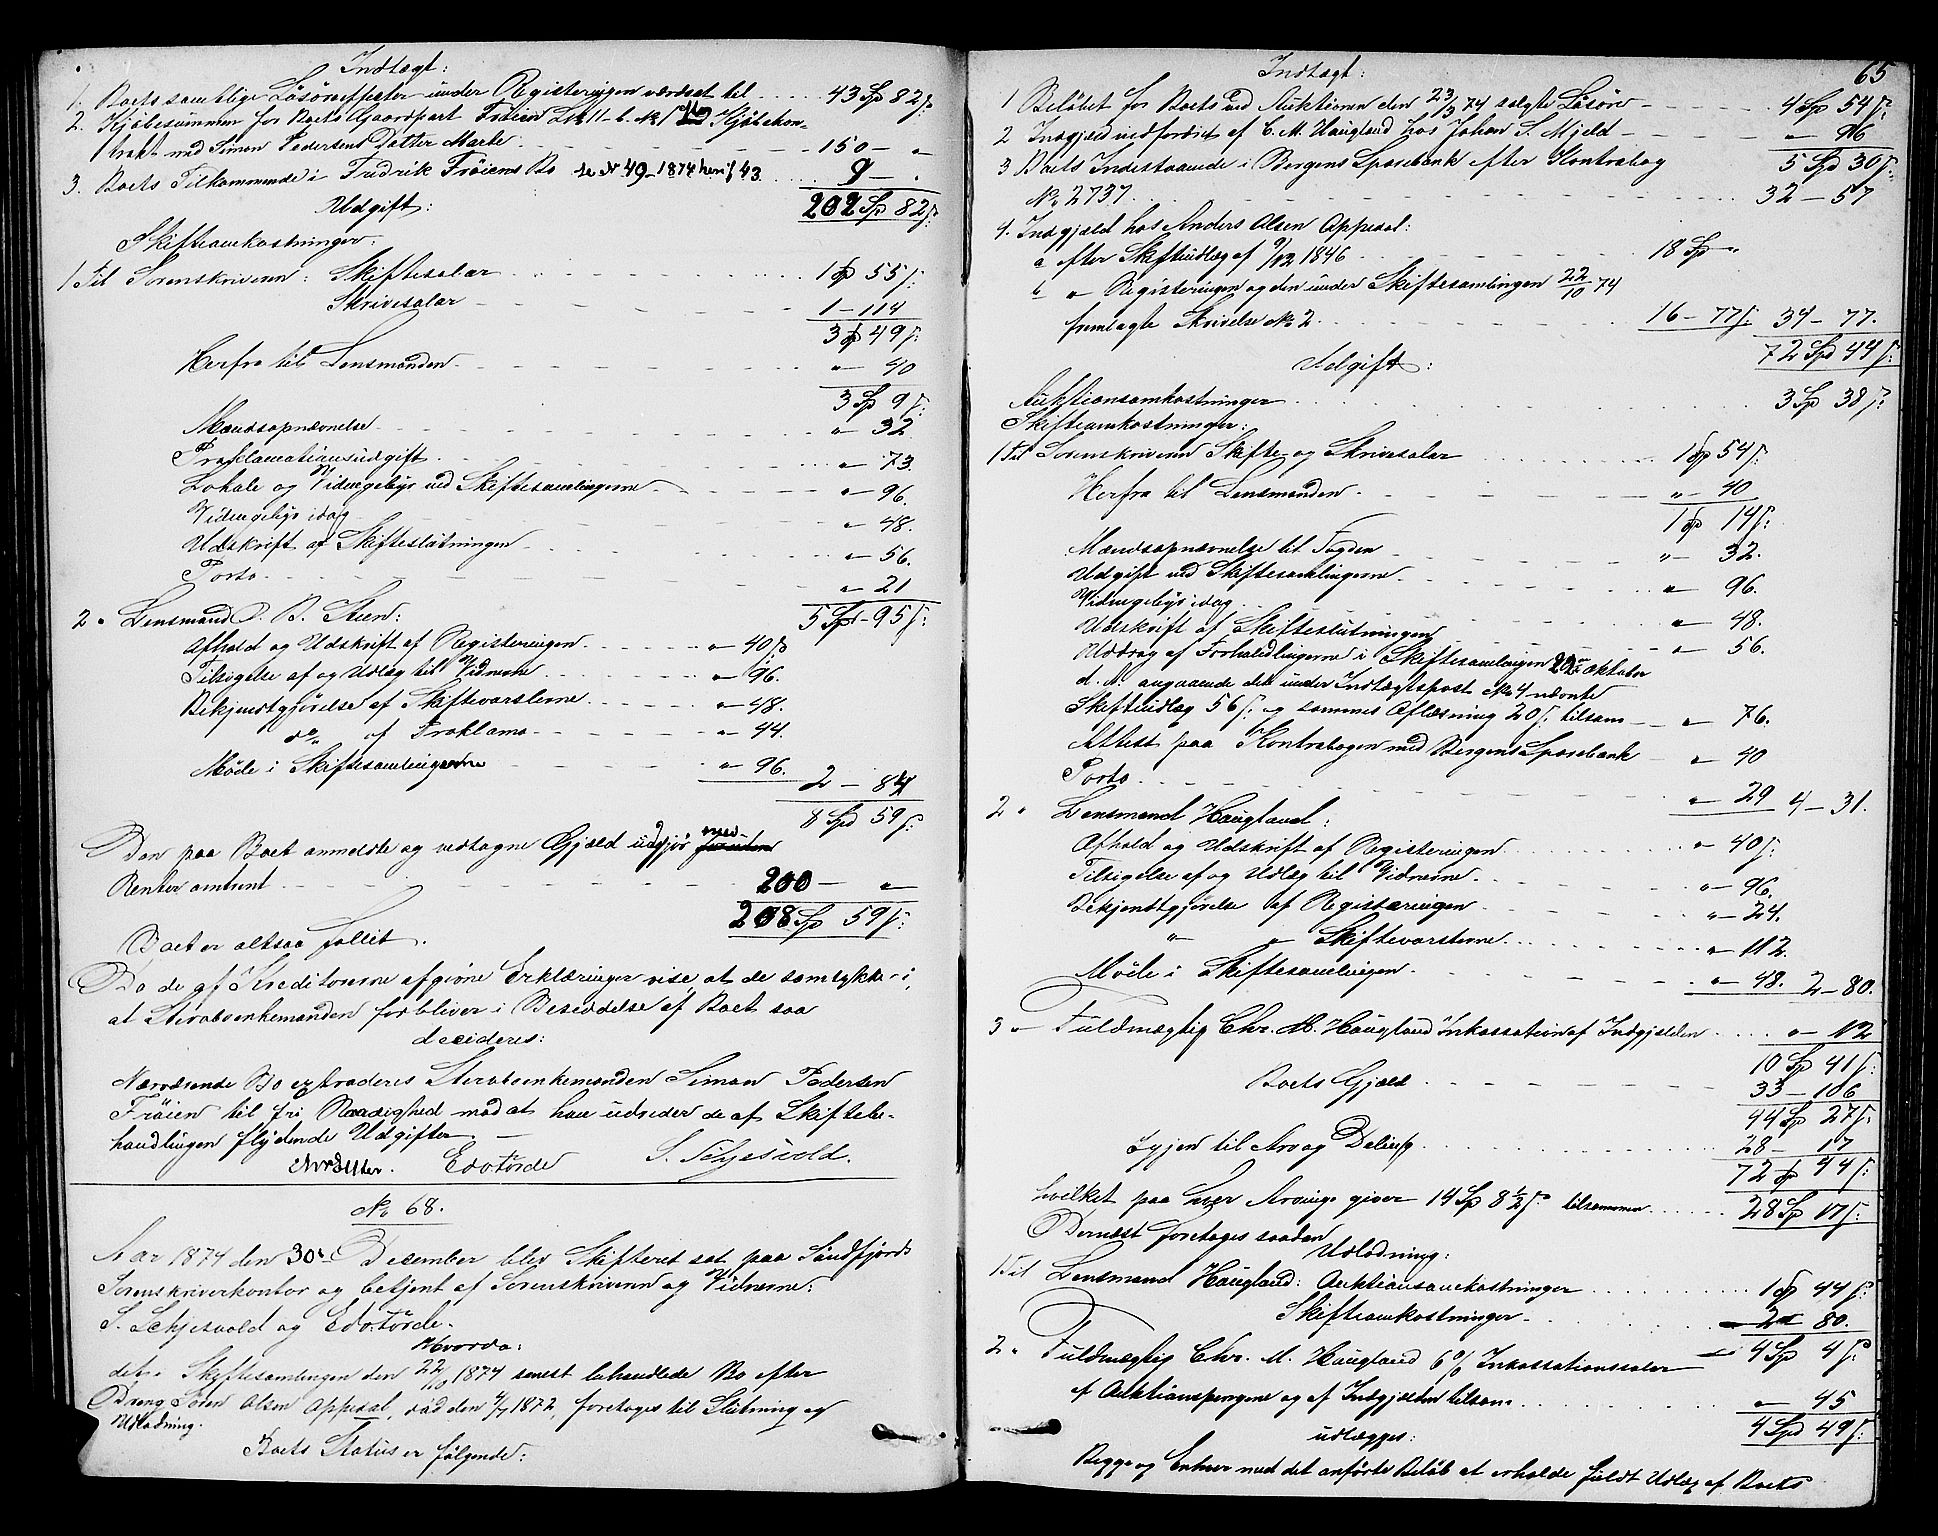 Indtægt:
1. Boets samtlige Løsøreffekter under Registeringen værdsat til 43 Sp 82 ſ:
2. Kjøbesummen for Boets Gaardpart Frøien LNr 11 - b. No 1 Kjøbekon-
trakt med Simon Pedersens Datter Marte 150 – „
3. Boets Tilkommende i Fredrik Frøiens Bo se N 49 - 1874 hen f 43 9 – „
202 Sp 82 ſ:
Udgift:
Skifteomkostninger:
1 Til Sorenskriveren: Skiftesalær 1 Sp 55 ſ:
Skrivesalær 1 – 114
3 Sp 49 ſ:
Herfra til Lensmanden „ – 40
3 Sp 9 ſ:
Mændsopnævnelse „ – 32
Proklamationsudgift „ – 73.
Lokale og Vidnegebyr ved Skiftesamlingerne „ – 96.
Vidnegebyr idag „ – 48.
Udskrift af Skifteslutningen „ – 56.
Porto „ – 21
5 Sp – 95 ſ:
2 „ Lensmand O. B. Steen:
Afhold og Udskrift af Registeringen „ – 40 ſ
Tilsigelse af og Udlæg til Vidnerne „ – 96.
Bekjendtgjørelse af Skiftevarslerne „ – 48.
do „ af Proklama „ – 44.
Møde i Skiftesamlingerne „ – 96. 2 – 84
8 Sp 59 ſ:
Den paa Boet anmeldte og vedtagne Gjæld udgjør med foruden
Renter omtrent 200 – „
208 Sp 59 ſ:
Boet er altsaa fallit.
Da de af Kreditorerne afgivne Erklæringer vise, at de samtykke i,
at Sterboenkemanden forbliver i Besiddelse af Boet saa
decideres:
Nærværende Bo extraderes Sterboenkemanden Simon Pedersen
Frøien til fri Raadighed mod at han udreder de af Skiftebe-
handlingen flydende Udgifter. –
Edv. Førde S. Schjesvold.
No 68.
Aar 1874 den 30te December blev Skifteret sat paa Søndfjords
Sorenskriverkontor og betjent af Sorenskriveren og Vidnerne:
S. Schjesvold og Edv. Førde.
Hvorda:
det i Skiftesamlingen den 22/10 1874 senest behandlede Bo efter
Dreng Søren Olsen Appedal, død den 4/7 1872, foretoges til Slutning og
Udlodning.
Boets Status er følgende:
65
Indtægt:
1 Beløbet for Boets ved Auktionen den 23/3 74 solgte Løsøre 4 Sp 54 ſ:
2 Indgjæld indfordret af C. M. Haugland hos Johan S. Mjeld „ – 96
5 Sp 30 ſ:
3 Boets Indestaaende i Bergens Sparebank efter Kontrabog
No 2737 32 – 57
4. Indgjæld hos Anders Olsen Appedal:
a efter Skifteudlæg af 9/12 1846 18 Sp „
b „ Registeringen og den under Skiftesamlingen 22/10 74
fremlagte Skrivelse No 2 16 – 77 ſ: 34 – 77.
72 Sp 44 ſ:
Udgift:
Auktionsomkostninger 3 Sp 38 ſ:
Skifteomkostninger:
1 Til Sorenskriveren Skifte- og Skrivesalær 1 Sp 54 ſ:
Herfra til Lensmanden „ – 40
1 Sp 14 ſ:
Mændsopnævnelse til Fogden „ – 32.
Udgift ved Skiftesamlingerne „ – 96.
Vidnegebyr idag „ – 48.
Udskrift af Skifteslutningen „ – 56.
Uddrag af Forhandlingerne i Skiftesamlingen 22de Oktober
d. A. angaaende det under Indtægtspost No 4 nævnte
Skifteudlæg 56 ſ: og sammes Aflæsning 20 ſ: tilsam „ – 76.
Attest paa Kontrabogen med Bergens Sparebank „ – 40
Porto „ – 29 4 – 31.
2 „ Lensmand Haugland:
Afhold og Udskrift af Registeringen „ – 40 ſ:
Tilsigelse af og Udlæg til Vidnerne „ – 96.
Bekjendtgjørelse af Registeringen „ – 24.
„ „ Skiftevarslerne „ – 112.
Møde i Skiftesamlingen „ – 48. 2 – 80.
3 „ Fuldmægtig Chr. M. Haugland Inkassation af Indgjælden „ – 12
10 Sp 41 ſ:
Boets Gjæld 33 – 106
44 Sp 27 ſ:
Igjen til Arv og Deling 28 – 17
72 Sp 44 ſ:
hvilket paa hver Arving giver 14 Sp 8 1/2 ſ: tilsammen 28 Sp 17 ſ:
Dernæst foretoges saadan
Udlodning:
1 Til Lensmand Haugland: Auktionsomkostninger 1 Sp 44 ſ:
Skifteomkostninger 2 – 80.
4 Sp 4 ſ:
2 „ Fuldmægtig Chr. M. Haugland 6 % Inkassationssalær
af Auktionspengene og af Indgjælden tilsam „ – 45
4 Sp 49 ſ:
udlægges:
Begge og Enhver med det anførte Beløb at erholde fuldt Udlæg af Boets